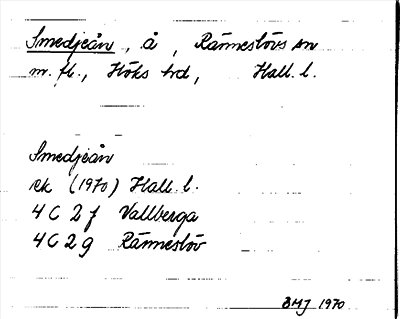 Smedjeån, å, Ränneslövs sn
m. fl., Höks hd, Hall. l.
Smedjeån
ek (1970) Hall. l.
4 C 2 f Vallberga
4 C 2 g Ränneslöv
BMJ 1970